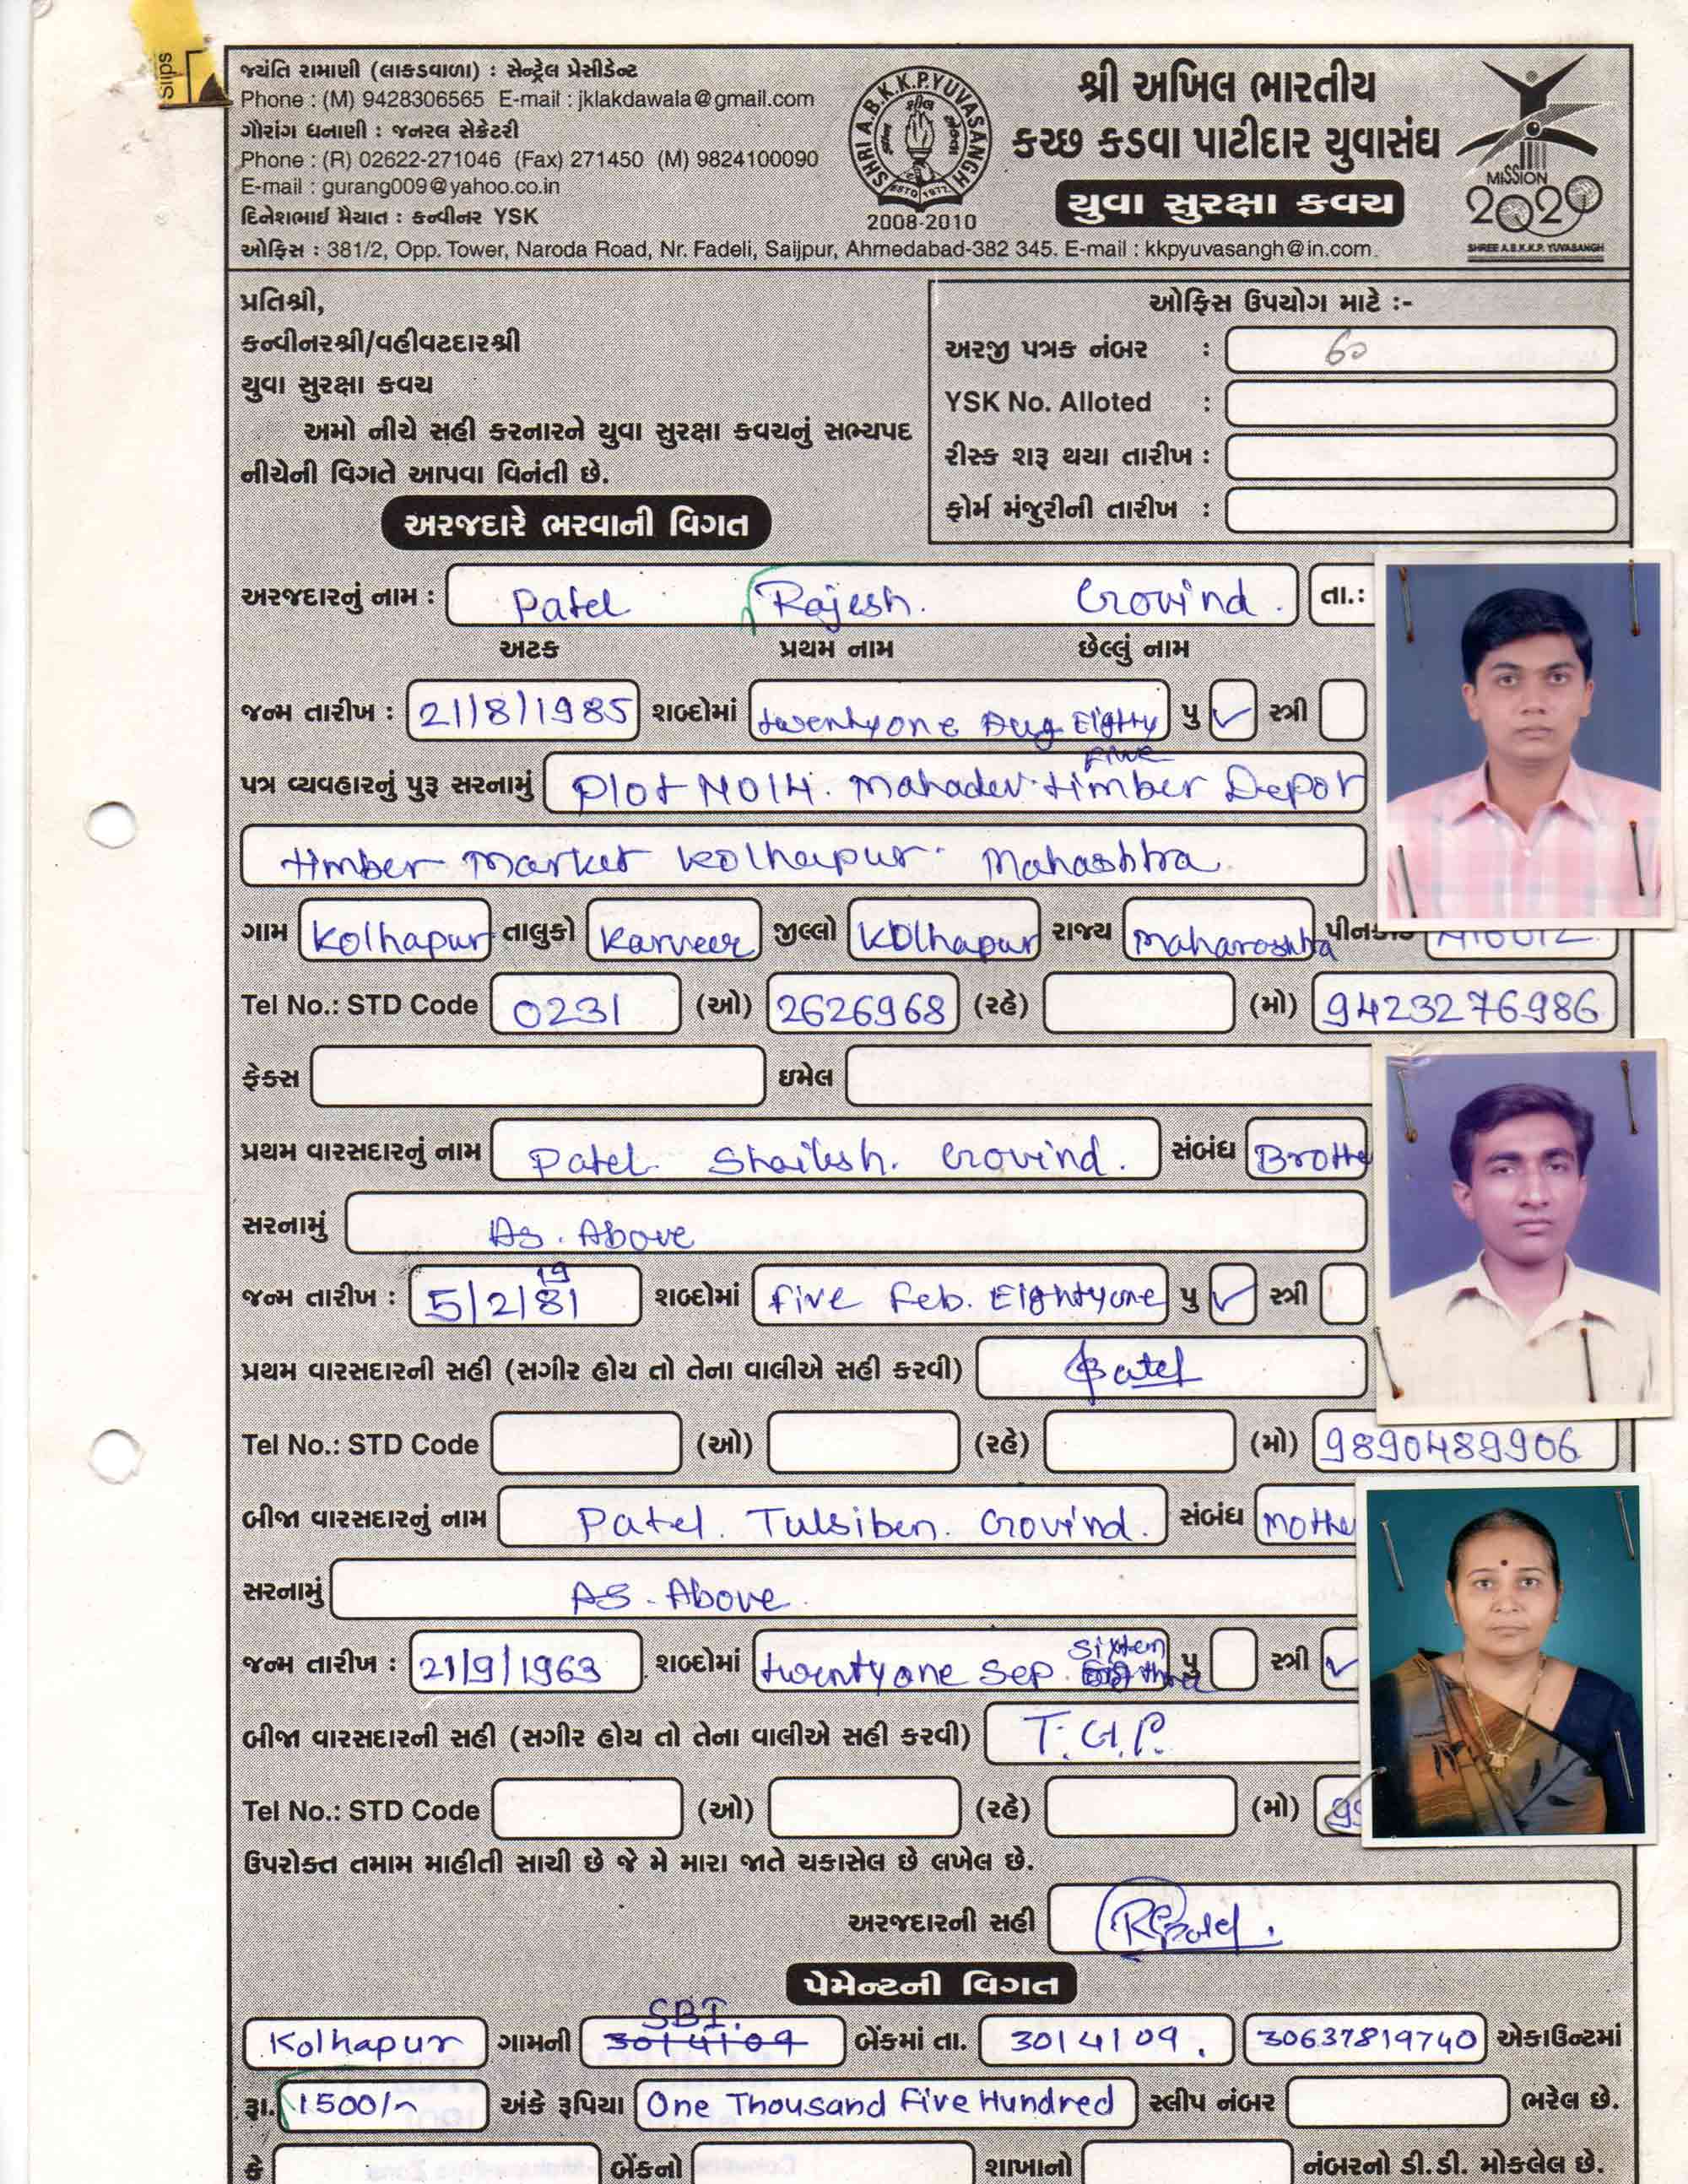 Slips
જયંતિ રામાણી (લાકડાવાળા) : સેન્ટ્રેલ પ્રેસીડેન્ટ
Phone : (M) 9428306565 E-mail : jklakdawala@gmail.com
ગૌરાંગ ધનાણી : જનરલ સેક્રેટરી
Phone : (R) 02622-271046 (Fax) 271450 (M) 9824100090
E-mail : gurang009@yahoo.co.in
દિનેશભાઈ મૈયાત : કન્વીનર YSK
ઓફિસ : 381/2, Opp. Tower, Naroda Road, Nr. Fadeli, Saijpur, Ahmedabad-382 345. E-mail : kkpyuvasangh@in.com.
SHRI A.B.K.K.P.YUVASANGH
ESTD 1977
2008-2010
શ્રી અખિલ ભારતીય
કચ્છ કડવા પાટીદાર યુવાસંઘ
યુવા સુરક્ષા કવચ
MISSION
2020
SHREE A.B.K.K.P. YUVASANGH
પ્રતિશ્રી,
કન્વીનરશ્રી/વહીવટદારશ્રી
યુવા સુરક્ષા કવચ
અમો નીચે સહી કરનારને યુવા સુરક્ષા કવચનું સભ્યપદ
નીચેની વિગતે આપવા વિનંતી છે.
ઓફિસ ઉપયોગ માટે :-
અરજી પત્રક નંબર : ૬૦
YSK No. Alloted :
રીસ્ક શરૂ થયા તારીખ :
ફોર્મ મંજુરીની તારીખ :
અરજદારે ભરવાની વિગત
અરજદારનું નામ : Patel Rajesh. Govind. તા.:
અટક પ્રથમ નામ છેલ્લું નામ
જન્મ તારીખ : 21/8/1985 શબ્દોમાં twentyone Aug Eighty five પુ ✓ સ્ત્રી
પત્ર વ્યવહારનું પુરૂ સરનામું Plot NO14. Mahadev timber Depot
timber market kolhapur. Mahashtra.
ગામ Kolhapur તાલુકો Karveer જીલ્લો Kolhapur રાજ્ય maharashtra
Tel No.: STD Code 0231 (ઓ) 2626968 (રહે) (મો) 9423276986
ફેક્સ ઇમેલ
પ્રથમ વારસદારનું નામ Patel. Shailesh. Govind. સંબંધ Brothe
સરનામું As. Above
જન્મ તારીખ : 5/2/1981 શબ્દોમાં five Feb. Eightyone પુ ✓ સ્ત્રી
પ્રથમ વારસદારની સહી (સગીર હોય તો તેના વાલીએ સહી કરવી)
Tel No.: STD Code (ઓ) (રહે) (મો) 9890489906
બીજા વારસદારનું નામ Patel. Tulsiben. Govind. સંબંધ mothe
સરનામું As. Above.
જન્મ તારીખ : 21/9/1963 શબ્દોમાં twentyone sep. પુ સ્ત્રી ✓
બીજા વારસદારની સહી (સગીર હોય તો તેના વાલીએ સહી કરવી) T.G.P.
Tel No.: STD Code (ઓ) (રહે) (મો) 99
ઉપરોક્ત તમામ માહીતી સાચી છે જે મે મારા જાતે ચકાસેલ છે લખેલ છે.
અરજદારની સહી
પેમેન્ટની વિગત
SBI.
Kolhapur ગામની 30/4/09 બેંકમાં તા. 30/4/09. 30637819740 એકાઉન્ટમાં
રૂા. 1500/- અંકે રૂપિયા One Thousand Five Hundred સ્લીપ નંબર ભરેલ છે.
કે બેંકનો શાખાનો નંબરનો ડી.ડી. મોકલેલ છે.